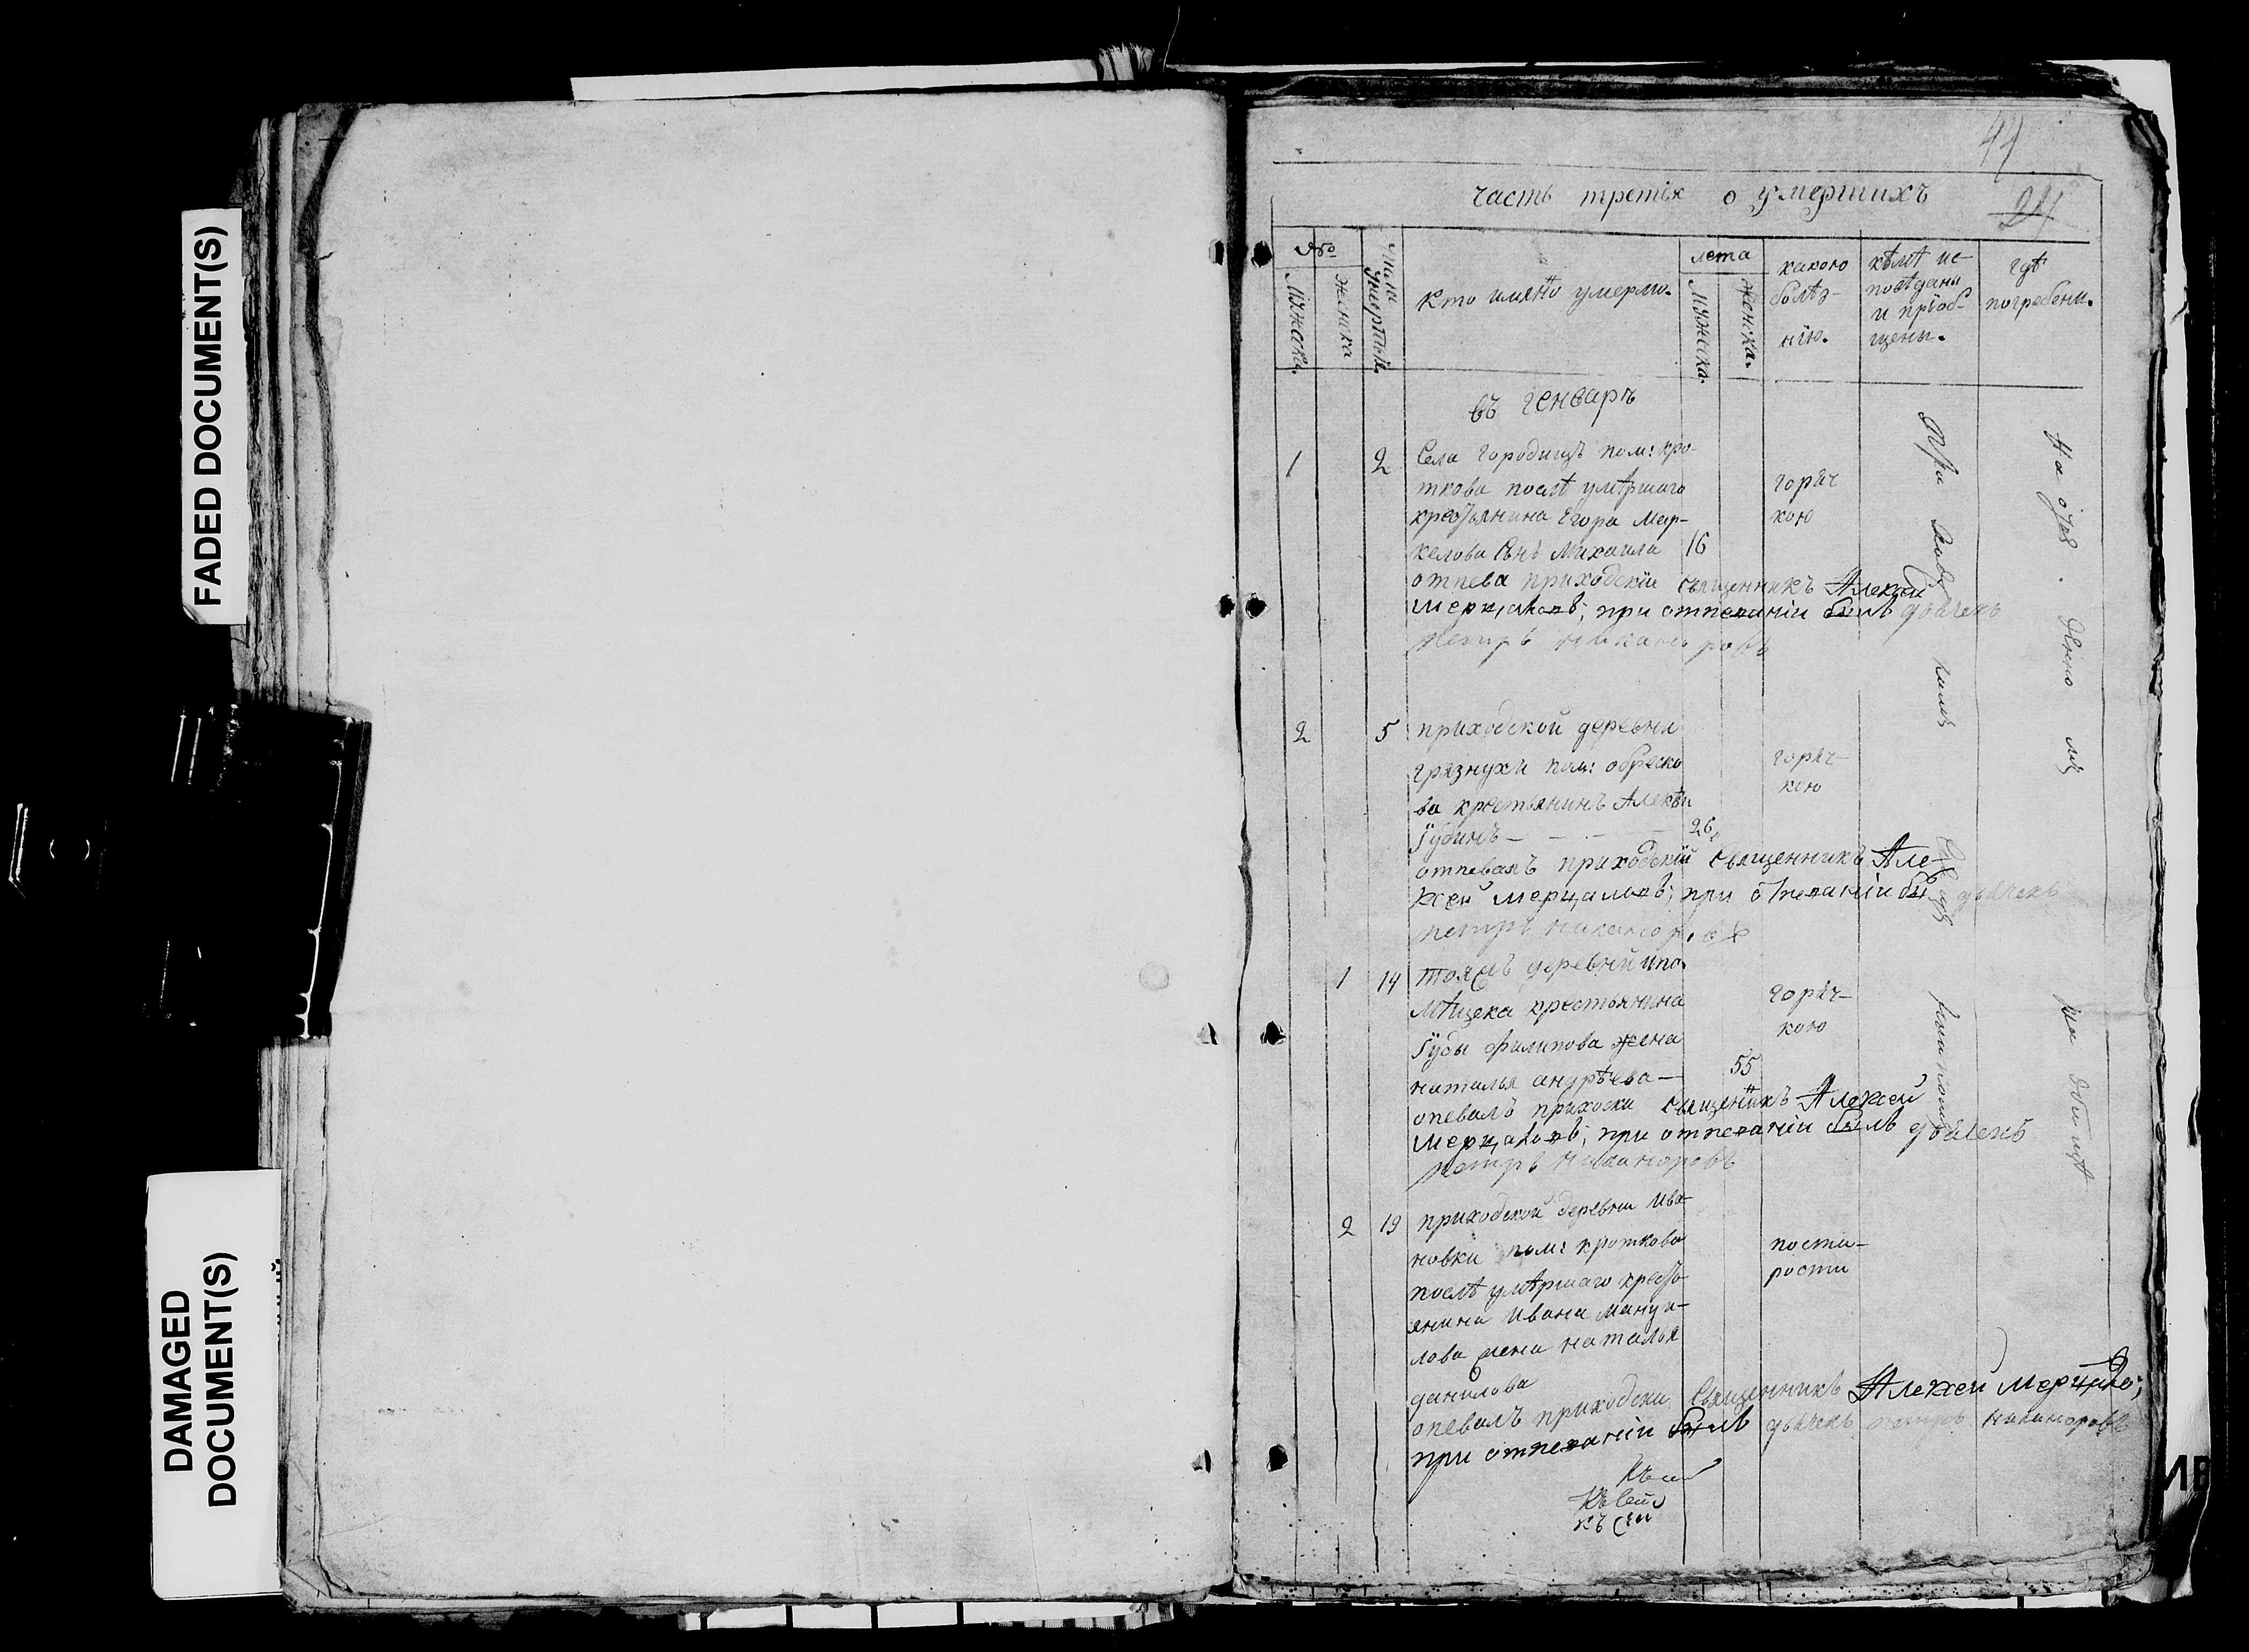 FADED DOCUMENT(S)
DAMAGED
DOCUMENT(S)
44
24
часть третія о умершихъ
№
Мужска.
женска
числа умертвій.
Кто имянно умерли.
лета
Мужска.
женска.
какою
болѣз-
нїю.
кѣмъ ис-
повѣданы
и прїоб-
щены.
гдѣ
погребены.
въ генварѣ
1
2
Села Городищъ пом: кро-
ткова послѣ умѣршаго
крестьянина Егора Мар-
келова сынъ Михаила
16
горяч
кою
отпева приходскїи священникъ Алексей
Мерцаловъ; при отпеваніи былъ дьячекъ
петръ никаноровъ
2
5
приходской деревни
грязнухи пом: обреско
ва крестьянинъ Алексѣи
Губинъ
26
горяч-
кою
отпевалъ приходскїй священникъ Але-
ксей мерцаловъ; при отпеваніи бы дьячекъ
петръ никанор
1
14
тояжъ деревни и по-
мѣщека крестьянина
Губы филипова жена
наталья андрѣева
55
горяч-
кою
опевалъ приходски священикъ Алексей
мерцаловъ; при отпеваніи былъ дьячекъ
петръ никаноровъ
2
19
приходской деревни Ива
новки пом: кроткова
послѣ умѣршаго кресть
янина Ивана Мануи-
лова жена наталья
данилова
поста-
рости
опевалъ приходски священникъ Алексей мерцало;
при отпеваніи былъ дьячекъ петръ никаноровъ
При
На
мъ
на
къ сей
къ сей